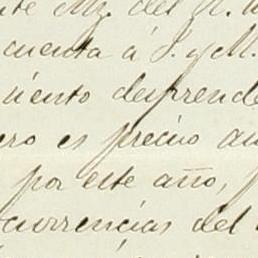 nte Mz. del N.
cuenta á S. y M.
iento desprende
ero es preciso au
por este año, p
currencias del